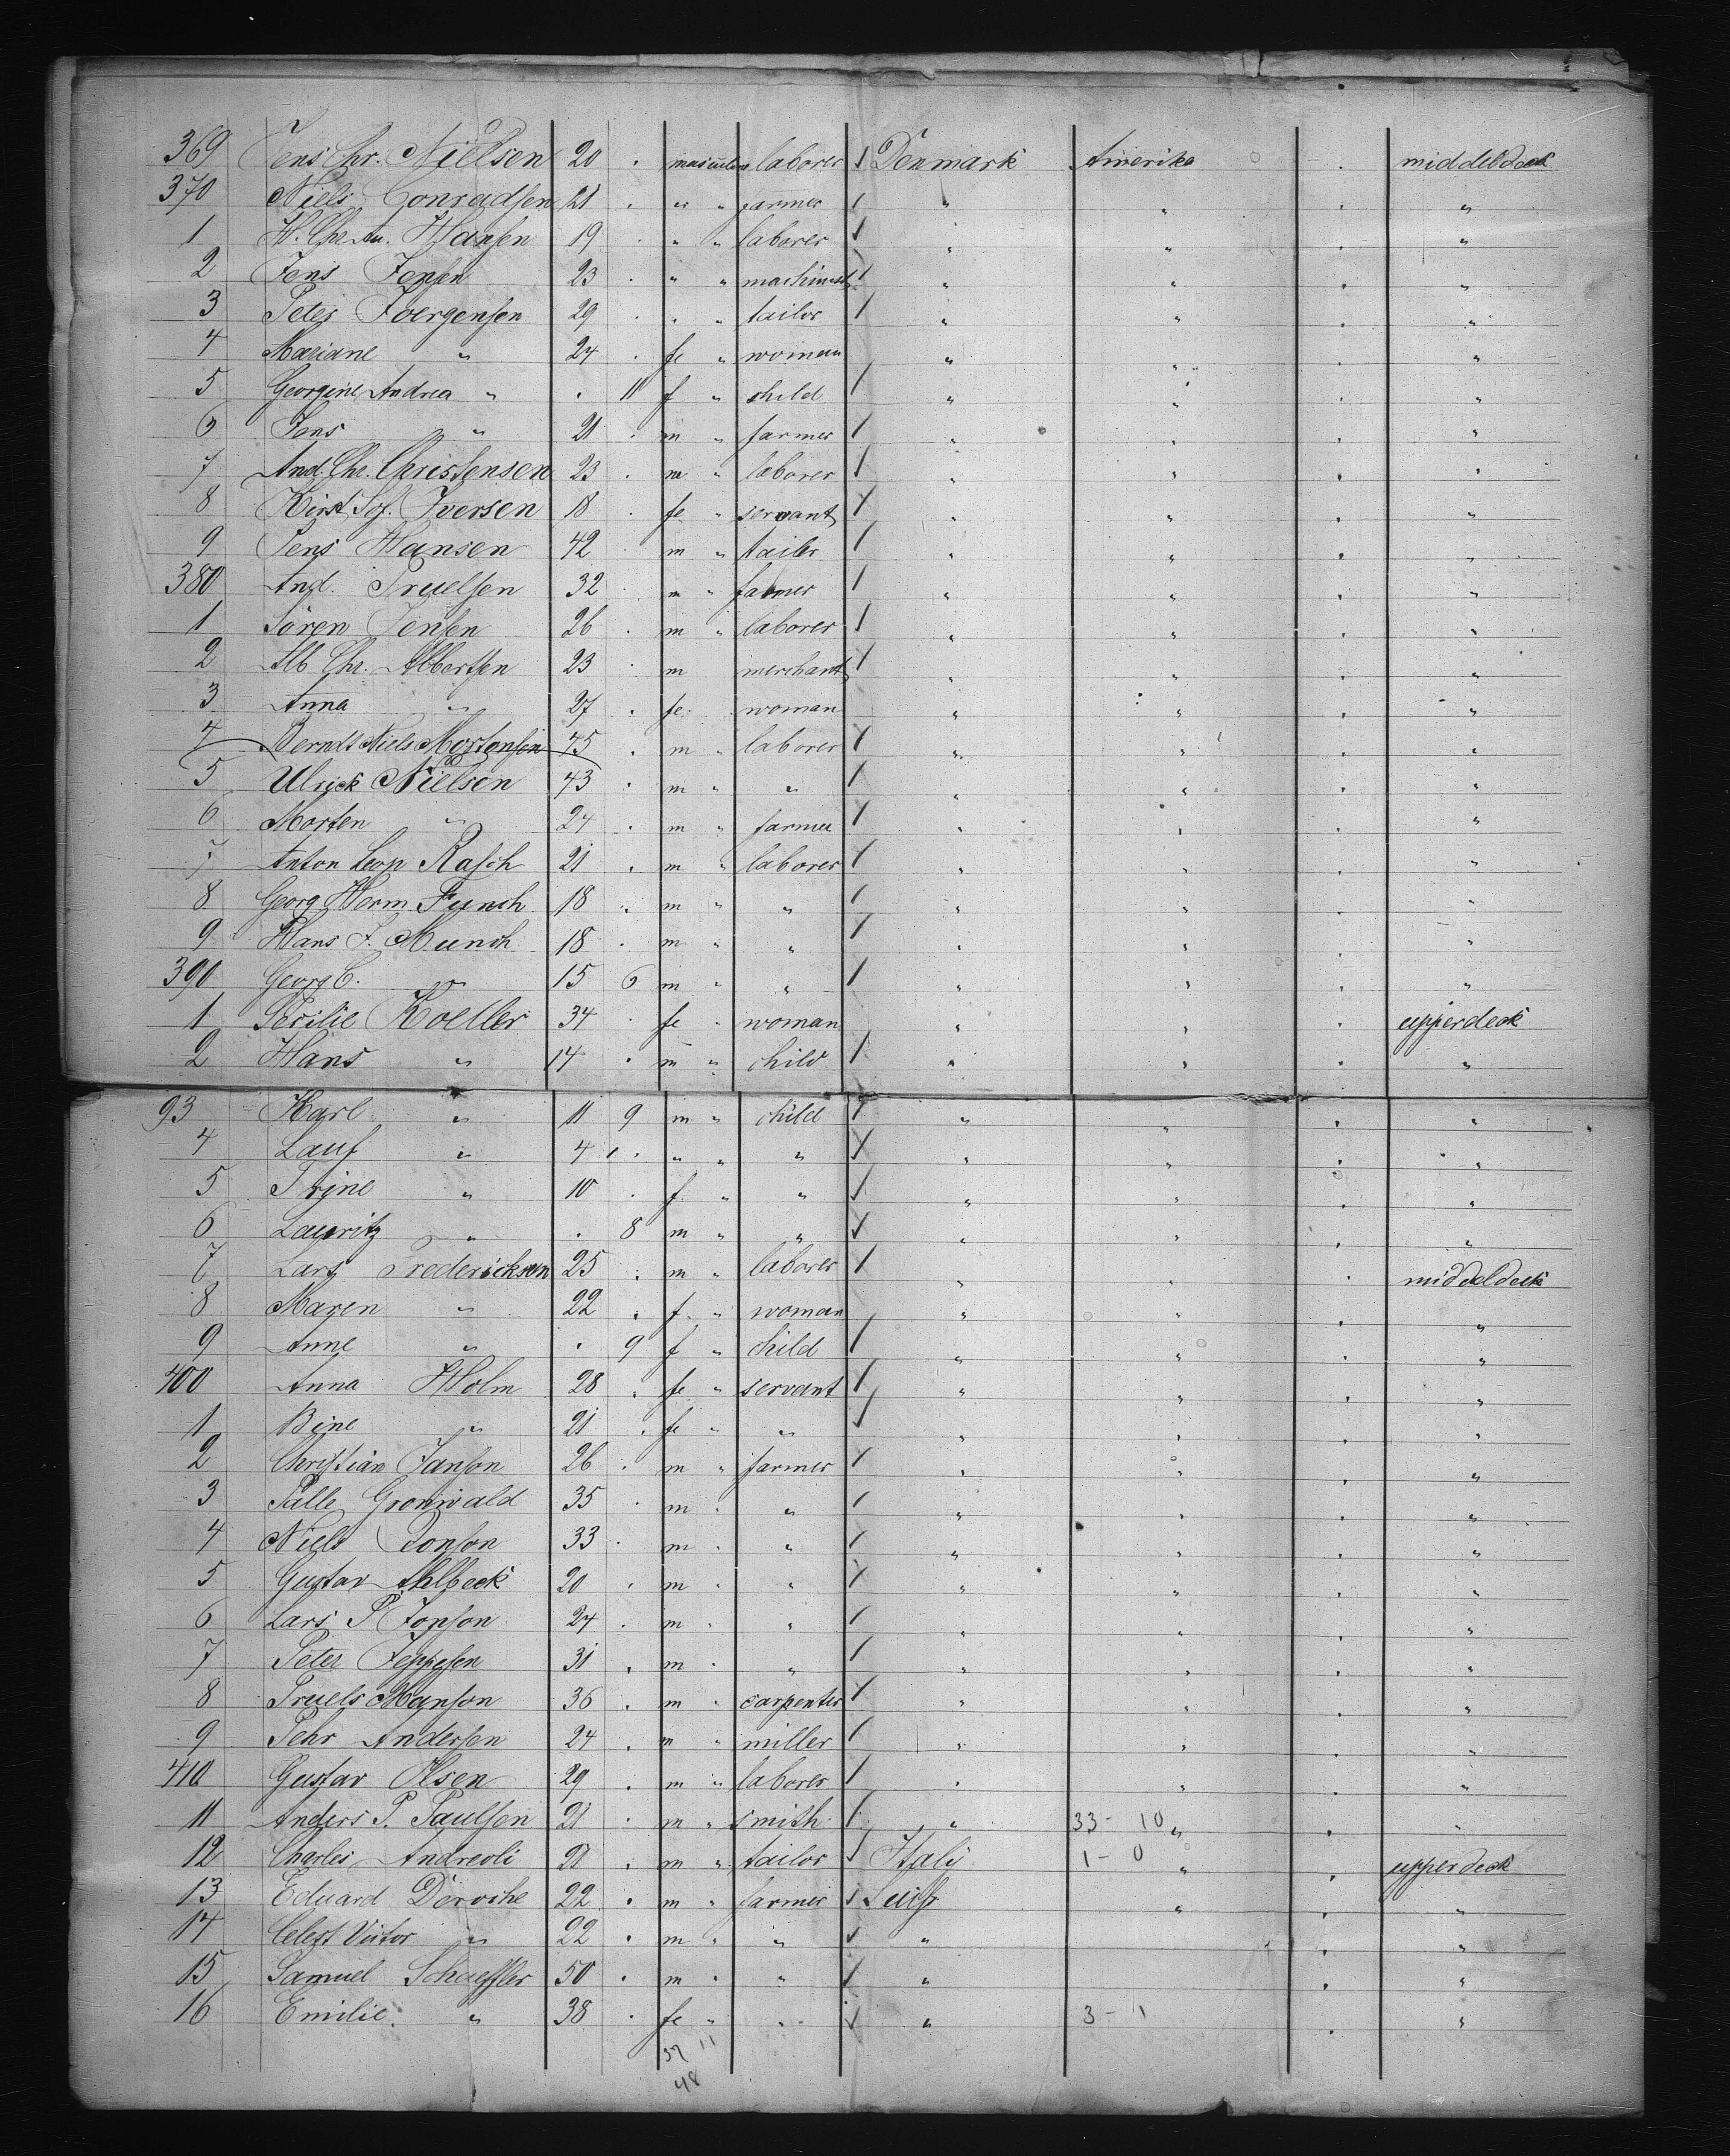 369 Jens Chr. Nielsen 20 . masculin laborer Denmark Amerika . middeldeck
370 Niels Conradsen 21 . " " farmer " " . "
1 H. Chr. Hansen 19 . " " laborer " " . "
2 Jens Jensen 23 . " " machinist " " . "
3 Peter Joergensen 29 . " " tailor " " . "
4 Mariane " 24 . fe " woman " " . "
5 Georgine Andrea " . 11 f " child " " . "
6 Jens " 21 . m " farmer " " . "
7 And. Chr. Christensen 23 . m " laborer " " . "
8 Kirst. Sof. Iversen 18 . fe " servant " " . "
9 Jens Hansen 42 . m " tailer " " . "
380 And. Truelsen 32 . m " farmer " " . "
1 Sören Jensen 26 . m " laborer " " . "
2 Alb Chr. Albertsen 23 . m merchant " " . "
3 Anna " 27 . fe. woman " " . "
4 Berndt Niels Mortensen 75 . m " laborer " " . "
5 Ulrick Nielsen 43 . m " " " " . "
6 Morten " 24 . m " farmer " " . "
7 Anton Leop Rasch 21 . m " laborer " " . "
8 Georg Herm. Funch 18 . m " " " " . "
9 Hans J. Munch 18 . m " " " " . "
390 Georg C. " 15 6 m " " " " . "
1 Koeller 34 . fe " woman " " . upperdeck
2 Hans " 14 . m " child " " . "
93 Karl " 11 9 m " child " " . "
4 Lauf " 4 . " " " " " . "
5 Trine " 10 . f. " " " " . "
6 Lauritz " . 8 m " " " " . "
7 Lars Fredericksen 25 . m " laborer " " . middeldeck
8 Maren " 22 . f. " woman " " . "
9 Anne " . 9 f " child " " . "
400 Anna Holm 28 . fe " servant " " . "
1 Bine " 21 . fe " " " " . "
2 Christian Janson 26 . m " farmer " " . "
3 Palle Gronwald 35 . m " " " " . "
4 Niels Jonson 33 . m " " " " . "
5 Gustav Ahlbeck 20 . m " " " " . "
6 Lars P Jonson 24 . m " " " " . "
7 Peter Jeppesen 31 . m " " " " . "
8 Truels Manson 36 . m " carpenter " " . "
9 Pehr Andersen 24 . m " miller " " . "
410 Gustav Olsen 29 . m " laborer " " . "
11 Anders P. Paulsen 21 . m " smith " 33 - 10 " . "
12 Charles Andreoli 21 . m " tailor Italy 1 - 0 " . upperdeck
13 Eduard Deroche 22 . m " farmer Suisse " . "
14 Celest Victor " 22 . m " " " . "
15 Samuel Schaeffler 50 . m " " " . "
16 Emilie " 38 . fe " " " 3 - 1 . "
37 11
48